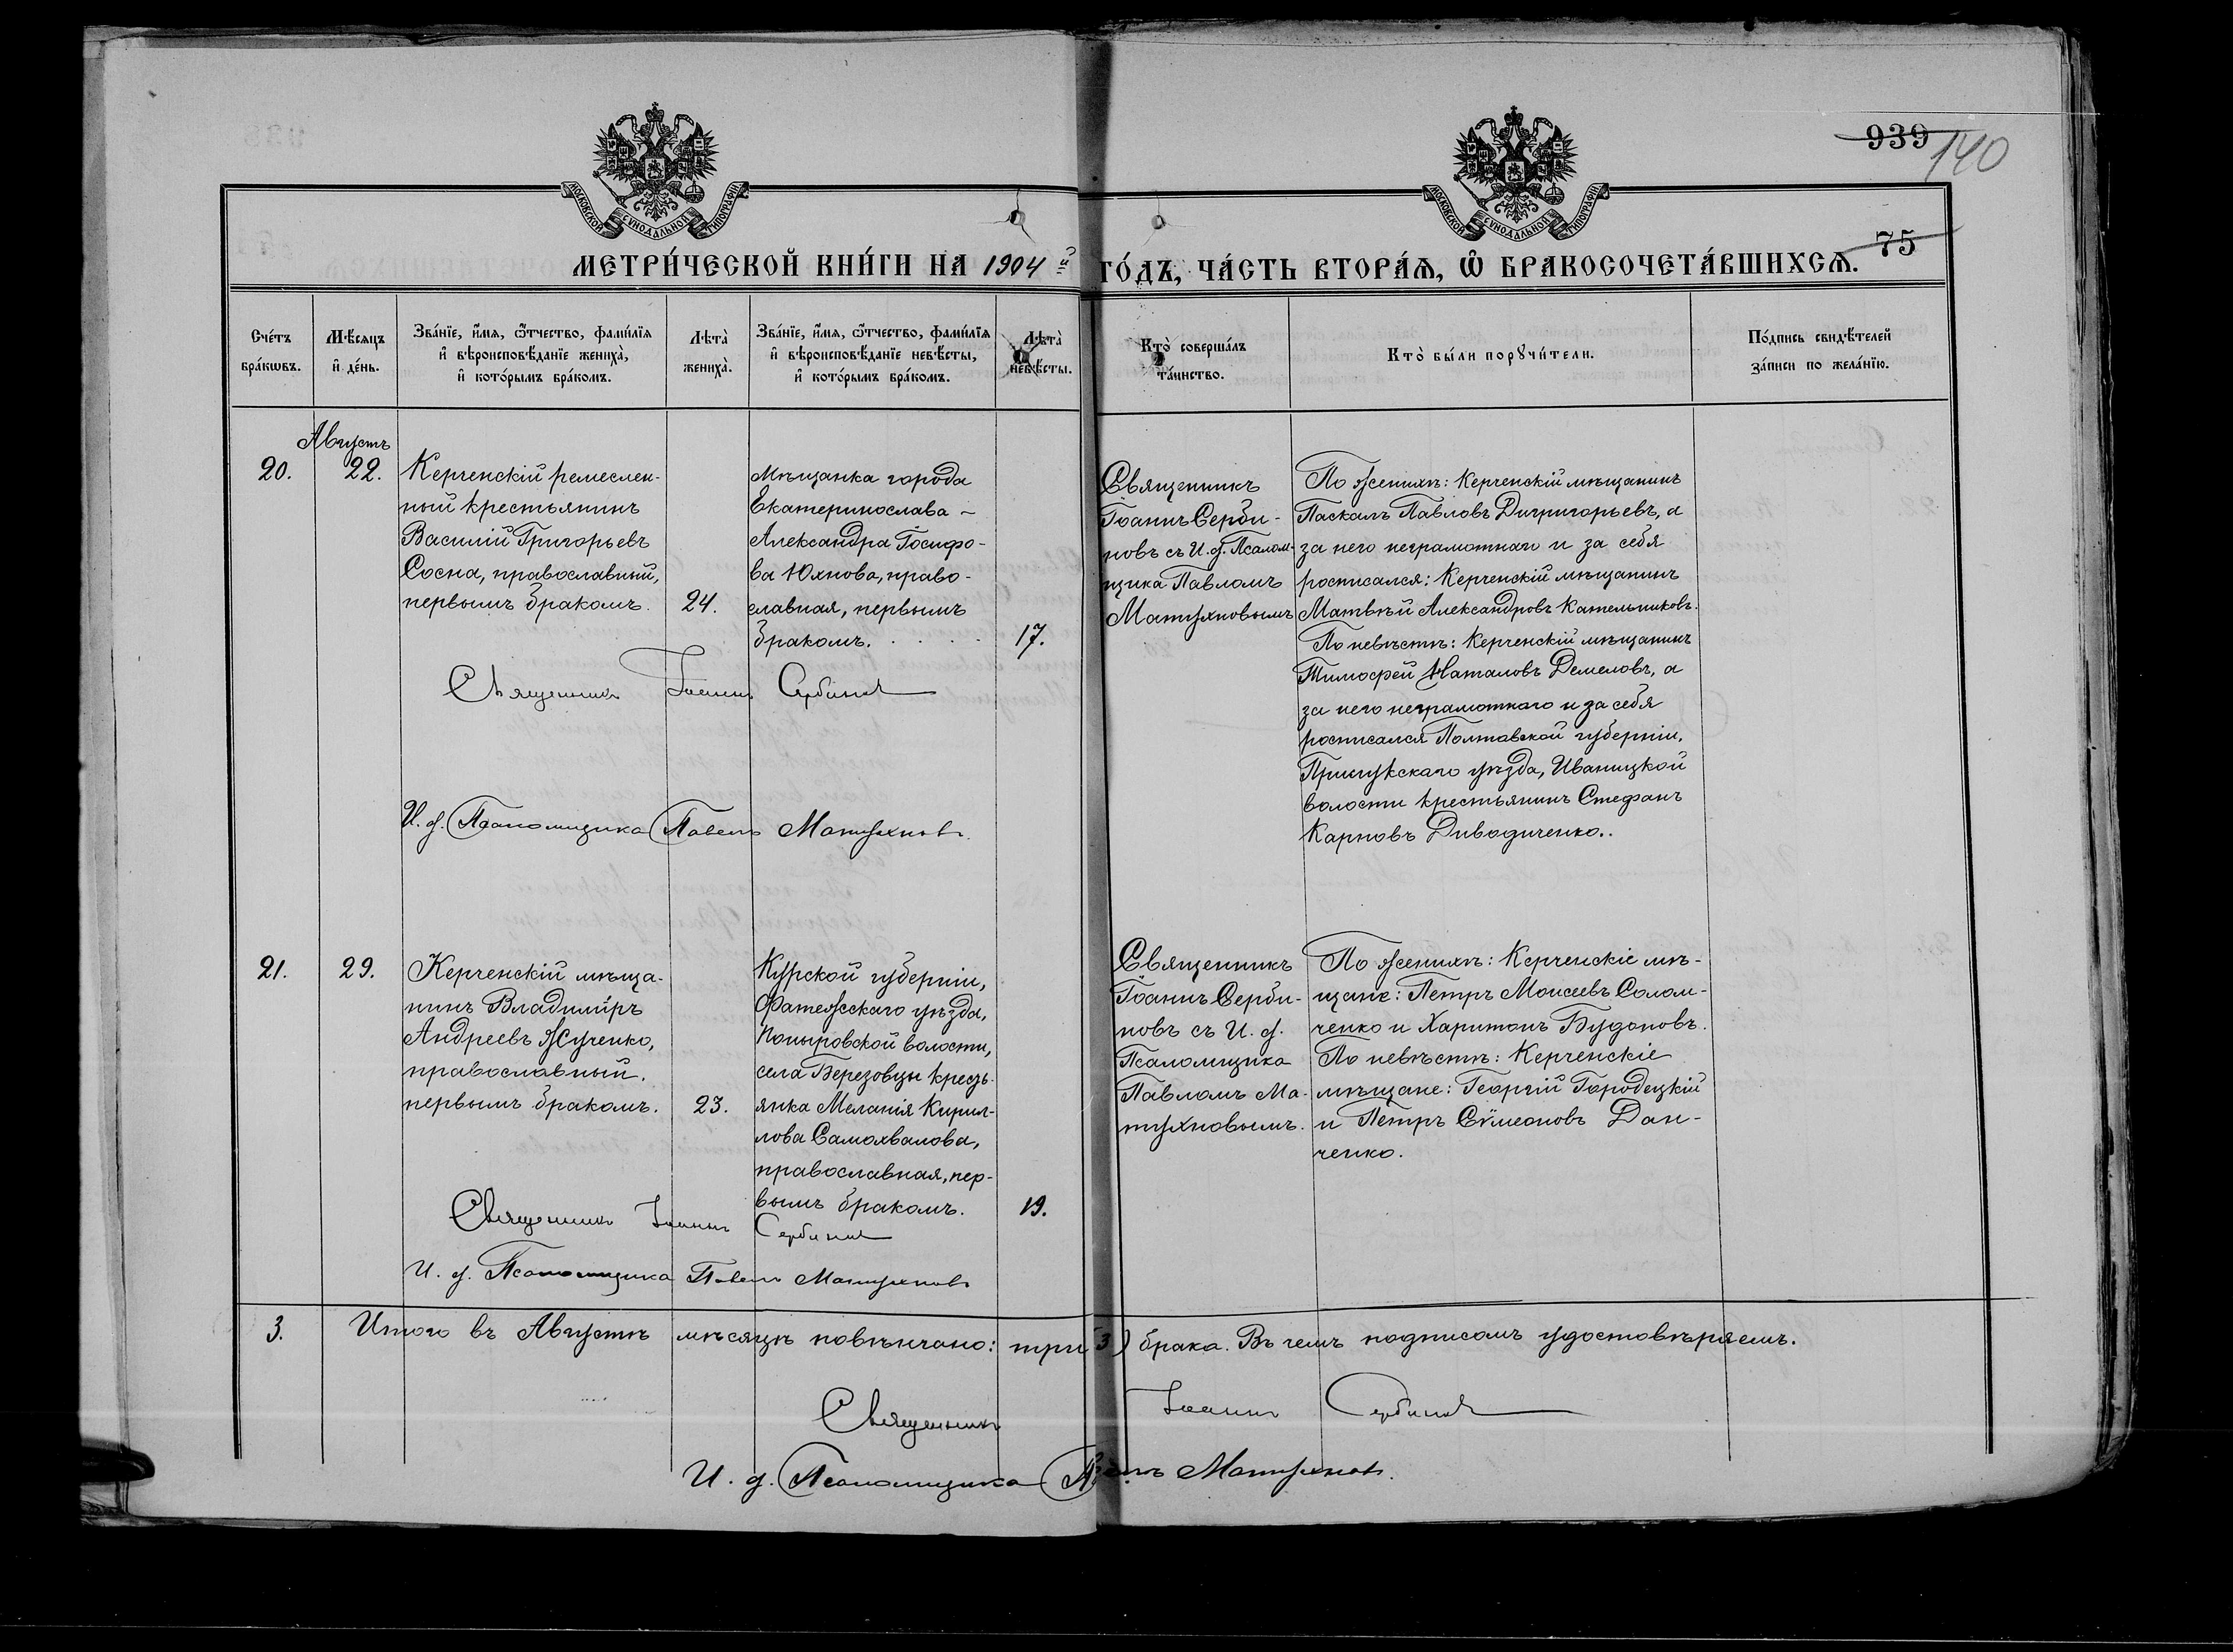 939
140
МОСКОВСКОЙ СѴНОДАЛЬНОЙ ТИПОГРАФІИ
МОСКОВСКОЙ СѴНОДАЛЬНОЙ ТИПОГРАФІИ
75
МЕТРИ́ЧЕСКОЙ КНИ́ГИ НА 1904й ГО́ДЪ, ЧА́СТЬ ВТОРА́Ѧ, Ѽ БРАКОСОЧЕТА́ВШИХСѦ.
Сче́тъ
бра́кѡвъ.
Мѣ́сяцъ
и҆ де́нь.
Зва́нїе, и҆́мя, ѻ҆́тчество, фами́лїя
и҆ вѣроисповѣ́данїе жениха̀,
и҆ кото́рымъ бра́комъ.
Лѣта̀
жениха̀.
Зва́нїе, и҆́мя, ѻ҆́тчество, фами́лїя
и҆ вѣроисповѣ́данїе невѣ́сты,
и҆ кото́рымъ бра́комъ.
Лѣта̀
невѣ́сты.
Кто̀ соверша́лъ
та́инство.
Кто̀ бы́ли порꙋчи́тели.
По́дпись свидѣ́телей
за́писи по жела́нїю.
Августъ
20.
22.
Керченскій ремеслен-
ный крестьянинъ
Василій Григорьевъ
Сосна, православный,
первымъ бракомъ.
24.
Мѣщанка города
Екатеринослава –
Александра Іосифо-
ва Юхнова, право-
славная, первымъ
бракомъ.
17.
Священникъ
Іоаннъ Серби-
новъ съ И. д. Псалом-
щика Павломъ
Матухновымъ
По женихѣ: Керченскій мѣщанинъ
Паскалъ Павловъ Дигригорьевъ, а
за него неграмотнаго и за себя
росписался: Керченскій мѣщанинъ
Матвѣй Александровъ Кательниковъ.
По невѣстѣ: Керченскій мѣщанинъ
Тимофей Наталовъ Демеловъ, а
за него неграмотнаго и за себя
росписался Полтавской губерніи,
Прилукскаго уѣзда, Иваницкой
волости крестьянинъ Стефанъ
Карповъ Диводиченко..
Священникъ Іоаннъ Сербиновъ
И. д. Псаломщика Павелъ Матухновъ.
21.
29.
Керченскій мѣща-
нинъ Владиміръ
Андреевъ Жученко,
православный.
первымъ бракомъ.
23.
Курской губерніи,
Фатежскаго уѣзда,
Поныровской волости,
села Березовцы кресть-
янка Меланія Кирил-
лова Самохвалова,
православная, пер-
вымъ бракомъ.
19.
Священникъ
Іоаннъ Серби-
новъ съ И. д.
Псаломщика
Павломъ Ма-
тухновымъ.
По женихѣ: Керченскіе мѣ-
щане: Петръ Моисеевъ Солом-
ченко и Харитонъ Будановъ.
По невѣстѣ: Керченскіе
мѣщане: Георгій Городецкій
и Петръ Сѵмеоновъ Дан-
ченко.
Священникъ Іоаннъ Сербиновъ
И. д. Псаломщика Павелъ Матухновъ
3.
Итого въ Августѣ мѣсяцѣ повѣнчано: три (3) брака. Въ чемъ подписомъ удостовѣряемъ.
Священникъ Іоаннъ Сербиновъ
И. д. Псаломщика Павелъ Матухновъ.